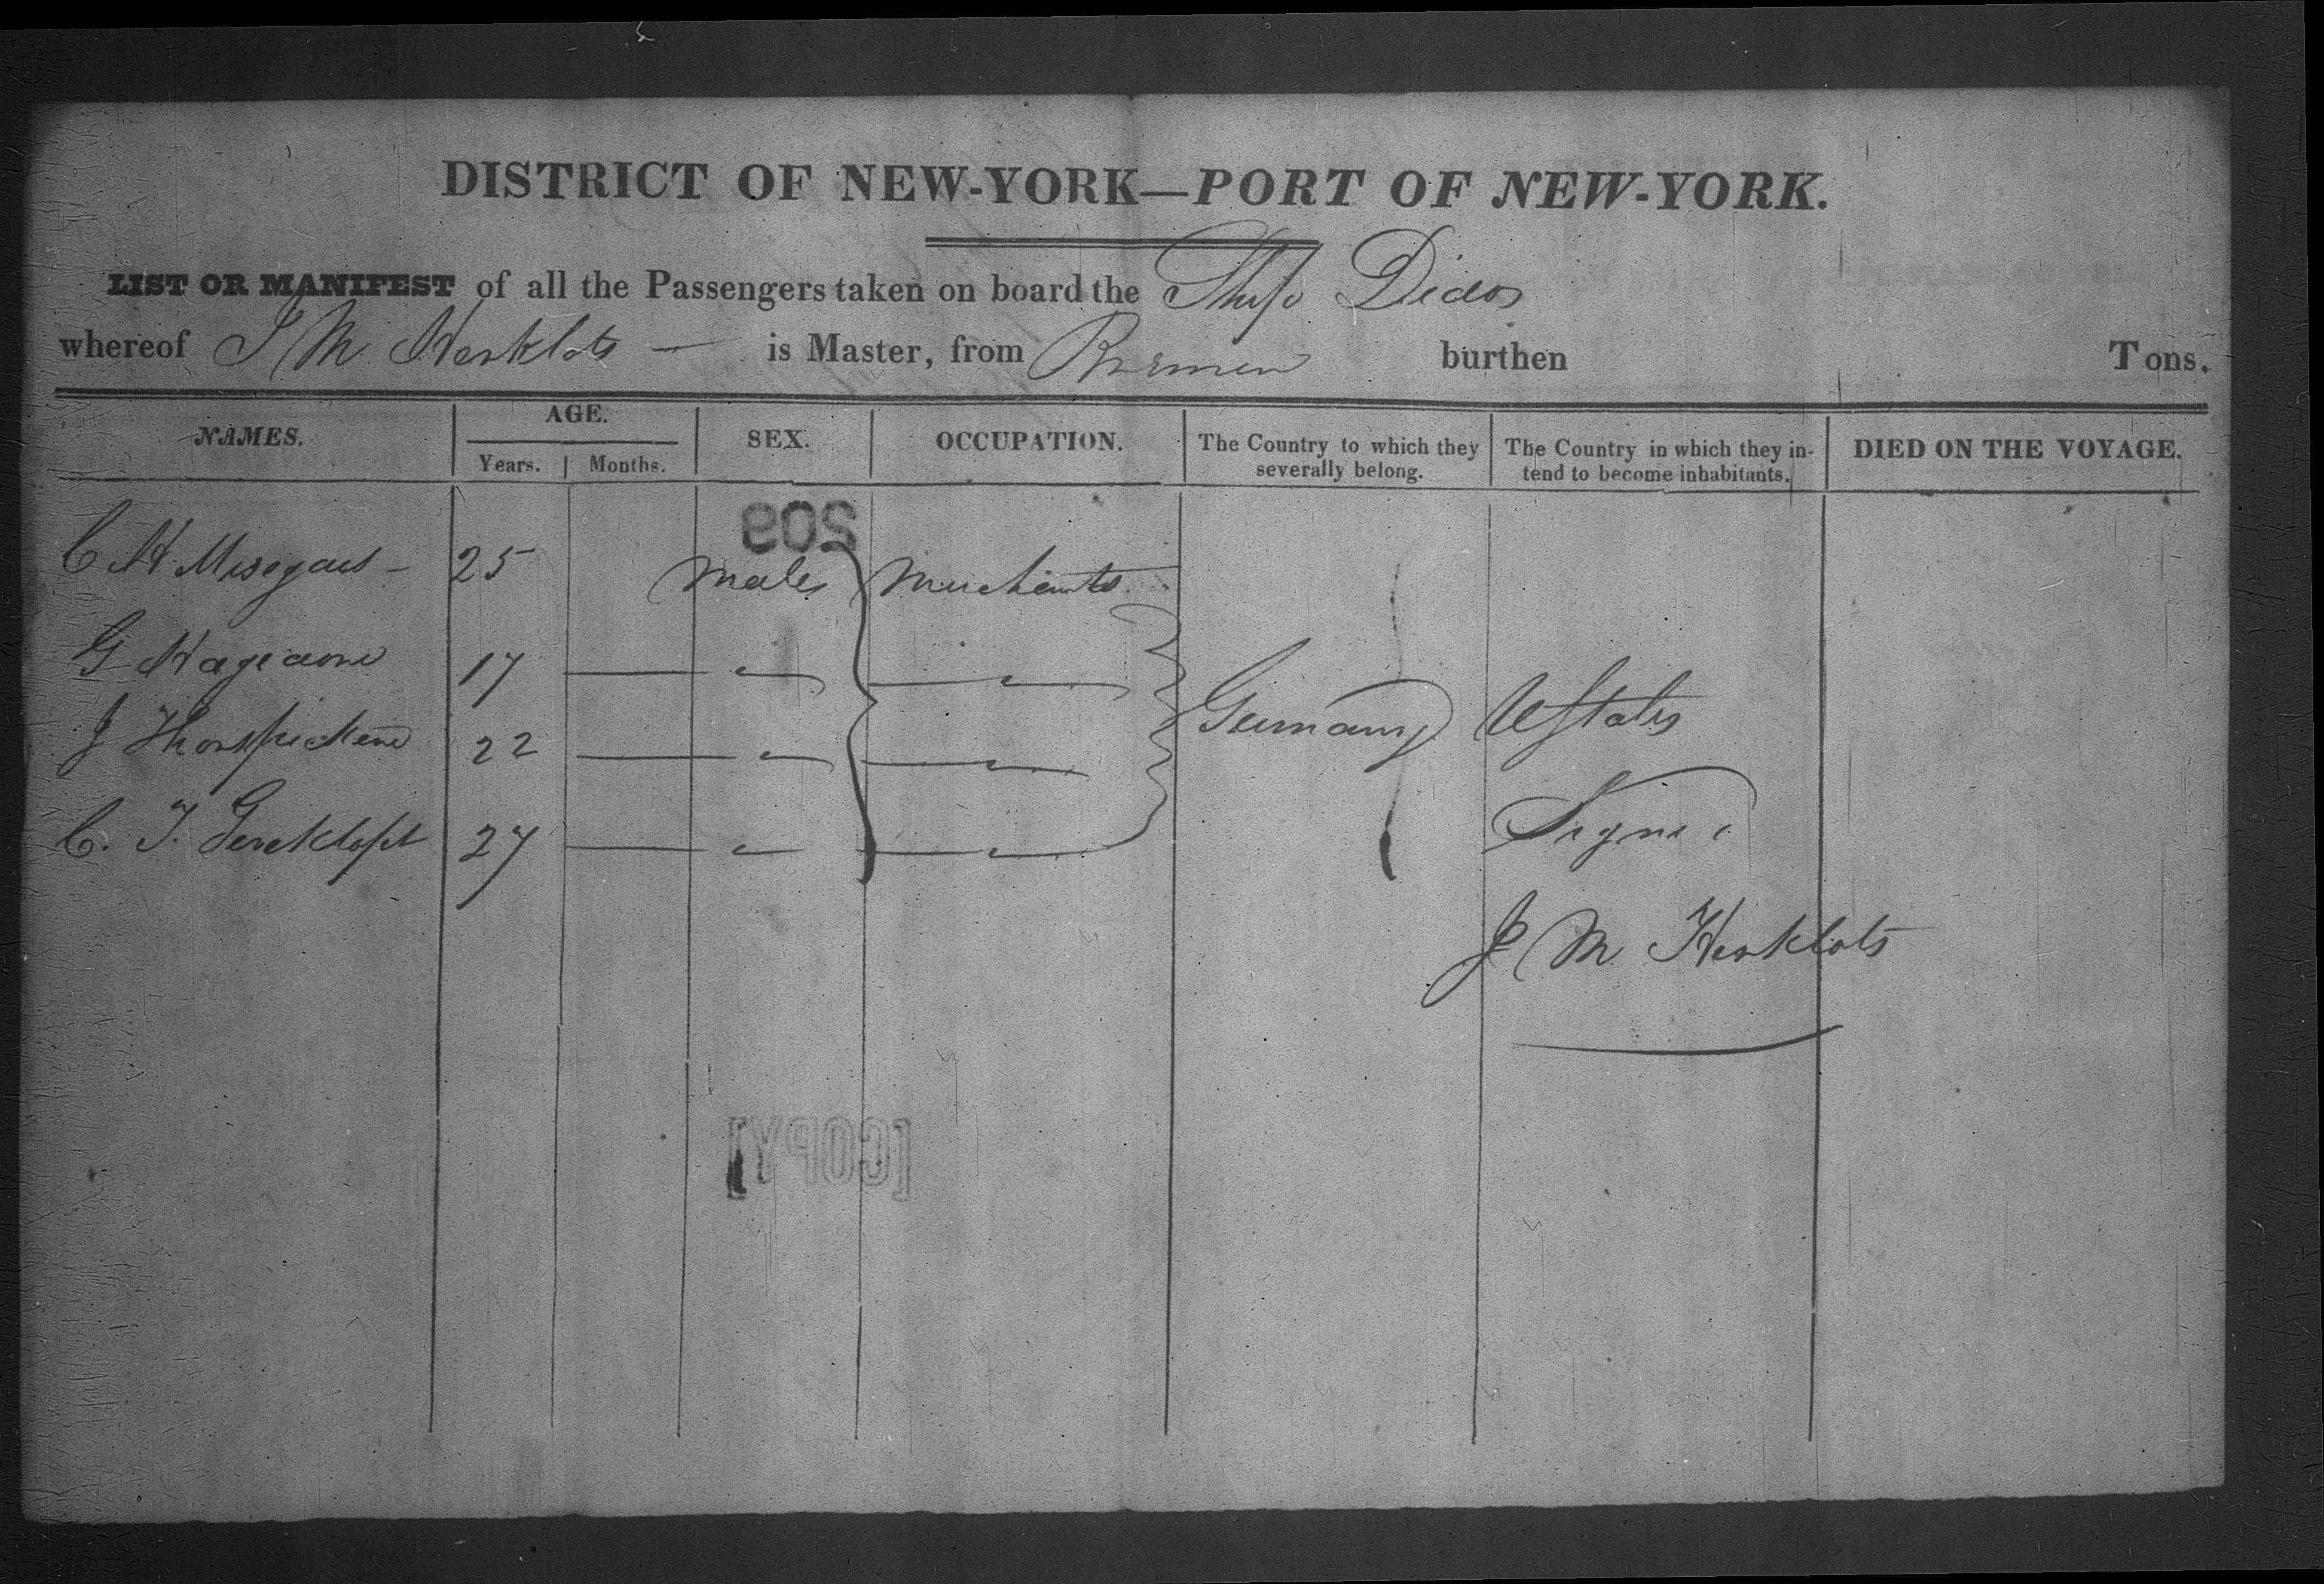 DISTRICT OF NEW-YORK—PORT OF NEW-YORK.
LIST OR MANIFEST of all the Passengers taken on board the Ship Didos
whereof J M Herklots — is Master, from Bremen burthen Tons.
NAMES. AGE. SEX. OCCUPATION. The Country to which they severally belong. The Country in which they in-tend to become inhabitants. DIED ON THE VOYAGE.
Years. Months.
209
C H Misegaes - 25 Males Merchants
G Hagedorn 17
J 22
C. T. 27
Germany UStates
Signed
J M Herklots
[COPY]